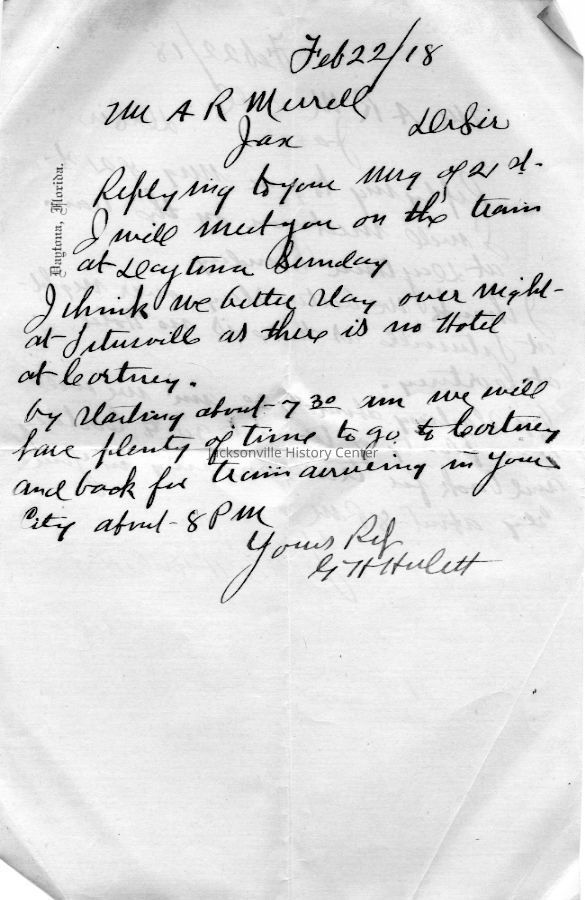 Feb 22/18
Mr A R Merrell
Jax Dr Sir
Daytona, Florida.
Replying to your Mrg of 21 st-
I will meet you on the train
at Daytona Sunday
I think we better stay over night-
at Titusville as there is no Hotel
at Cortney.
by starting about 7 30 am we will
have plenty of time to go to Cortney
Jacksonville History Center
and back for train arriving in your
City about 8 PM
Yours Rsf
G H Hulett